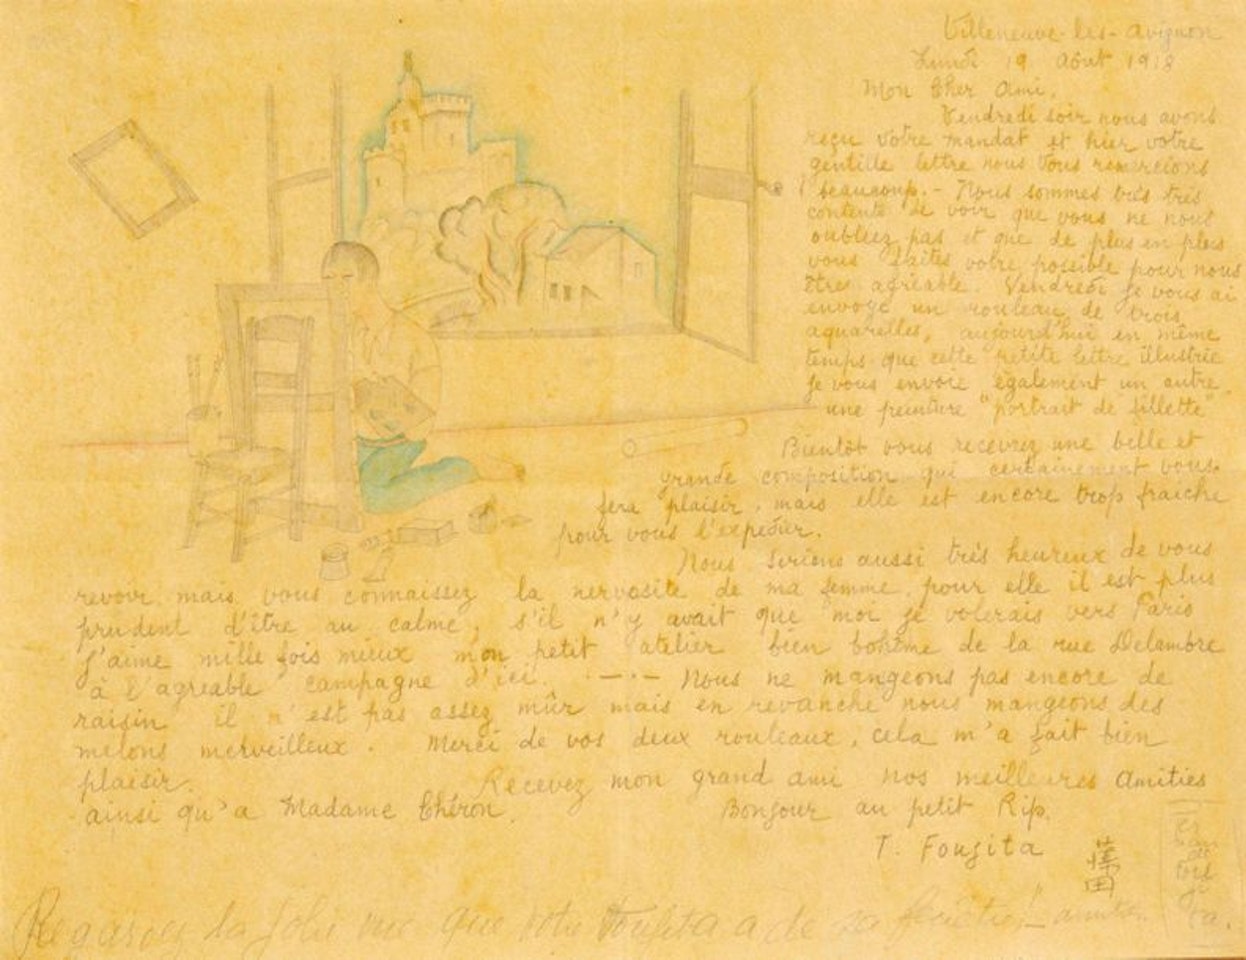 Villeneuve-les-Avignon
Lundi 19 Août 1918
Mon Cher Ami.
Vendredi soir nous avons
reçu votre mandat et hier votre
gentille lettre nous vous remercions
beaucoup. - Nous sommes très très
contents de voir que vous ne nous
oubliez pas et que de plus en plus
vous faites votre possible pour nous
être agréable. Vendredi je vous ai
envoyé un rouleau de trois
aquarelles, aujourd'hui en même
temps que cette petite lettre illustrée
je vous envoie également un autre
une peinture "portrait de fillette"
Bientôt vous recevrez une belle et
grande composition qui certainement vous
fera plaisir, mais elle est encore trop fraiche
pour vous l'expédier.
Nous serions aussi très heureux de vous
revoir, mais vous connaissez la nervosité de ma femme, pour elle il est plus
prudent d'être au calme, s'il n'y avait que moi je volerais vers Paris
J'aime mille fois mieux mon petit atelier bien bohême de la rue Delambre
à l'agréable campagne d'ici. —·— Nous ne mangeons pas encore de
raisin il n'est pas assez mûr mais en revanche nous mangeons des
melons merveilleux. Merci de vos deux rouleaux, cela m'a fait bien
plaisir. Recevez mon grand ami nos meilleures amitiés
ainsi qu'a Madame Chéron. Bonjour au petit Rip.
T. Foujita
田
Regardez la jolie vue que votre Foujita a de sa fenêtre! - amitiés.